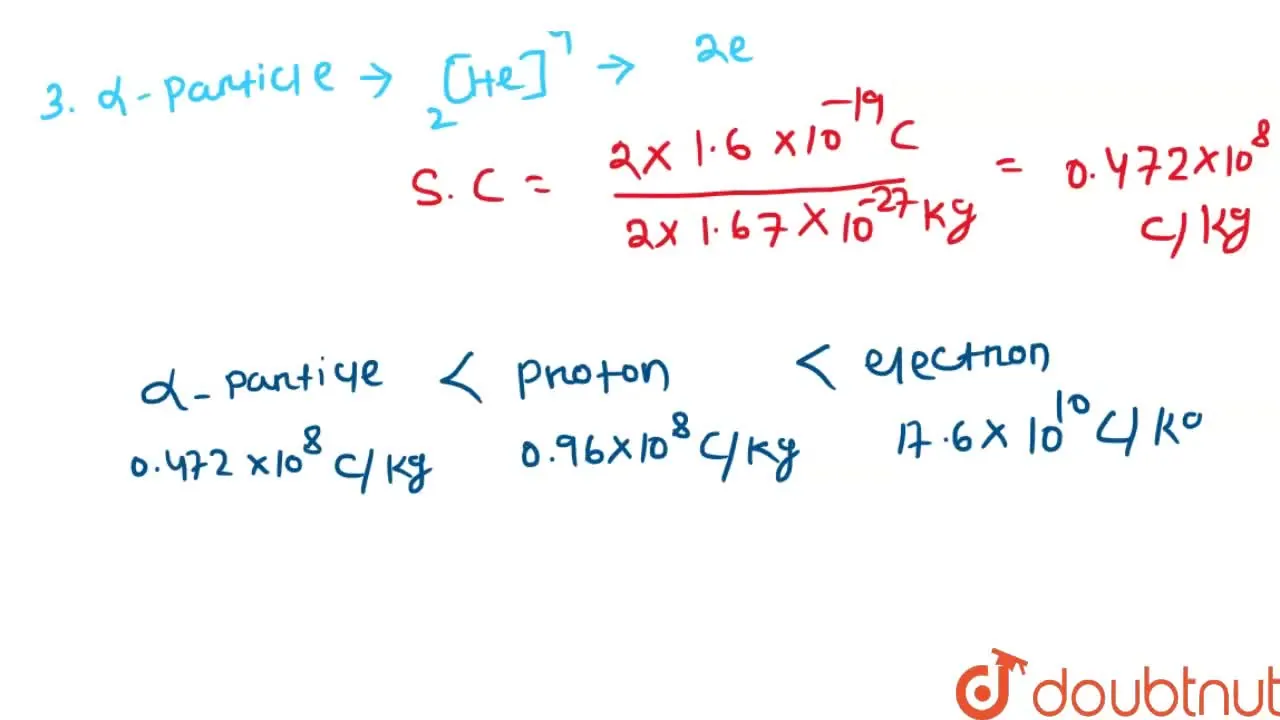 3. α-particle → ₂[He]⁴ → 2e
S.C = 2 × 1.6 × 10⁻¹⁹ C / 2 × 1.67 × 10⁻²⁷ kg = 0.472 × 10⁸ C/kg
α-particle < proton < electron
0.472 × 10⁸ C/kg 0.96 × 10⁸ C/kg 17.6 × 10¹⁰ C/kg
doubtnut